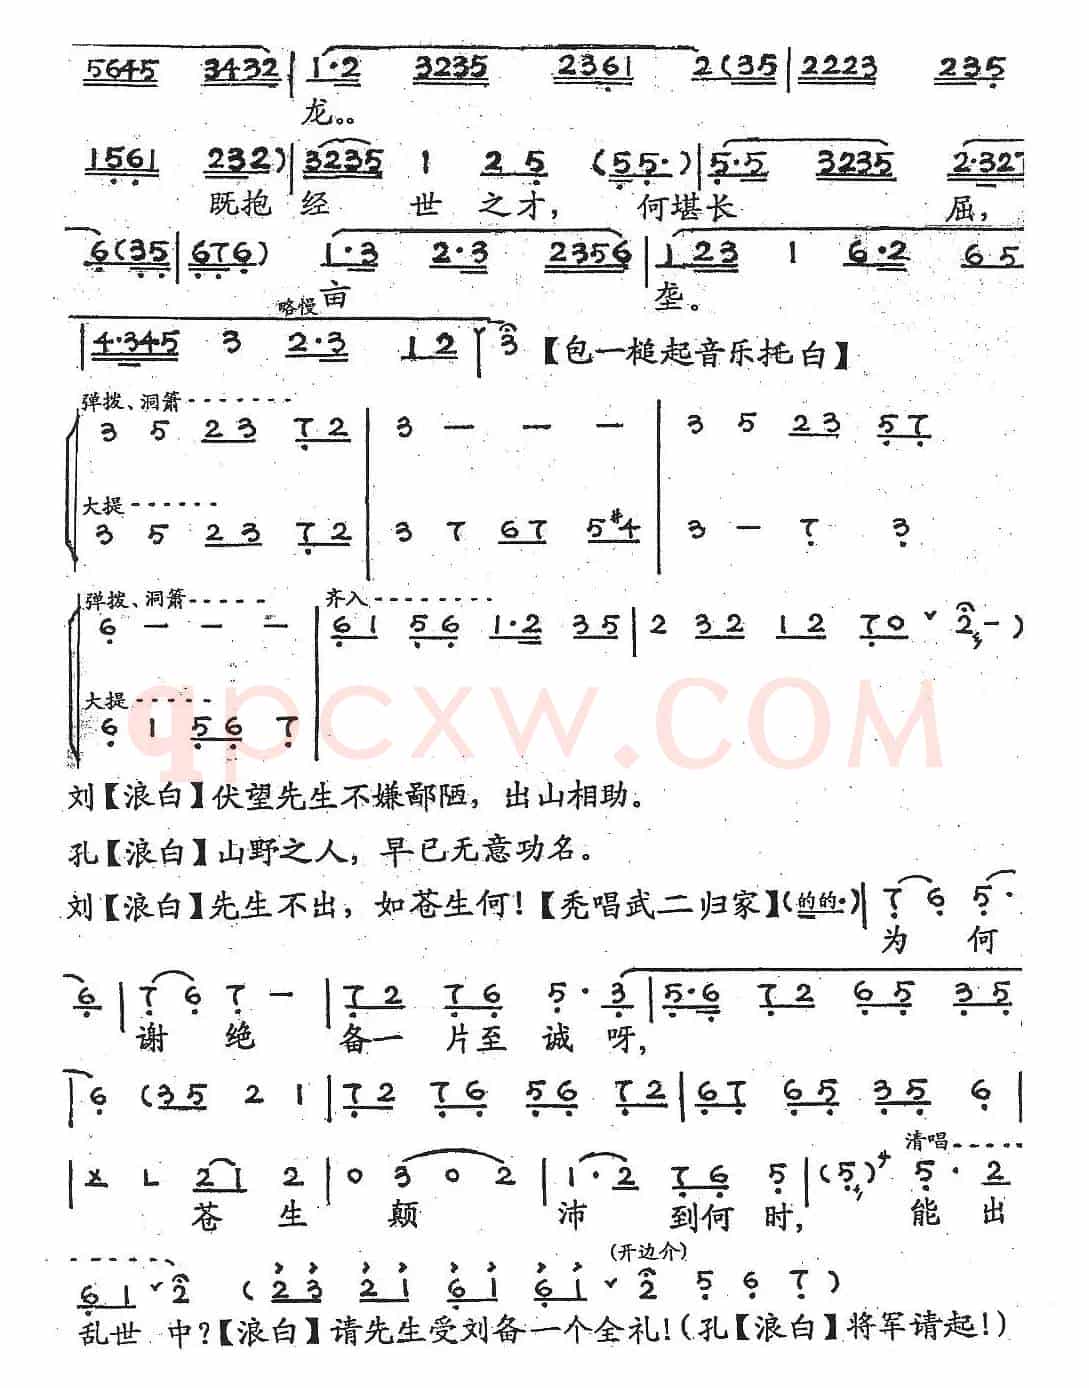 5645 3432 | 1·2 3235 2361 2(35 | 2223 235
龙。。
1561 232) | 3235 1 2 5 (55·) | 5·5 3235 2·327
既抱 经 世 之 才, 何堪长 屈,
6(35 | 676) 1·3 2·3 2356 | 123 1 6·2 65
略慢 亩 垄。
| 4·345 3 2·3 12 | 3 【包一槌起音乐托白】
弹拨、洞箫
3 5 23 72 | 3 — — — | 3 5 23 57
大提
3 5 23 72 | 3 7 67 5#4 | 3 — 7 3
弹拨、洞箫 齐入
6 — — — | 61 56 1·2 35 | 2 32 12 70 ˇ 2 — )
大提
6 1 56 7
qpcxw.COM
刘【浪白】伏望先生不嫌鄙陋，出山相助。
孔【浪白】山野之人，早已无意功名。
刘【浪白】先生不出，如苍生何!【秃唱武二归家】(的的·) | 7 6 5·
为 何
6 | 7 6 7 — | 72 76 5· 3 | 5·6 72 65 35
谢 绝 备一 片至 诚 呀,
6 (35 2 1 | 72 76 56 72 | 67 65 35 6 |
清唱
| X L 21 2 | 0 3 0 2 | 1·2 76 5 | (5) 5· 2
苍 生 颠 沛 到何 时, 能 出
(开边介)
61 ˇ 2 ( 23 21 61 61 ˇ 2 5 6 7 )
乱世 中?【浪白】请先生受刘备一个全礼!(孔【浪白】将军请起!)